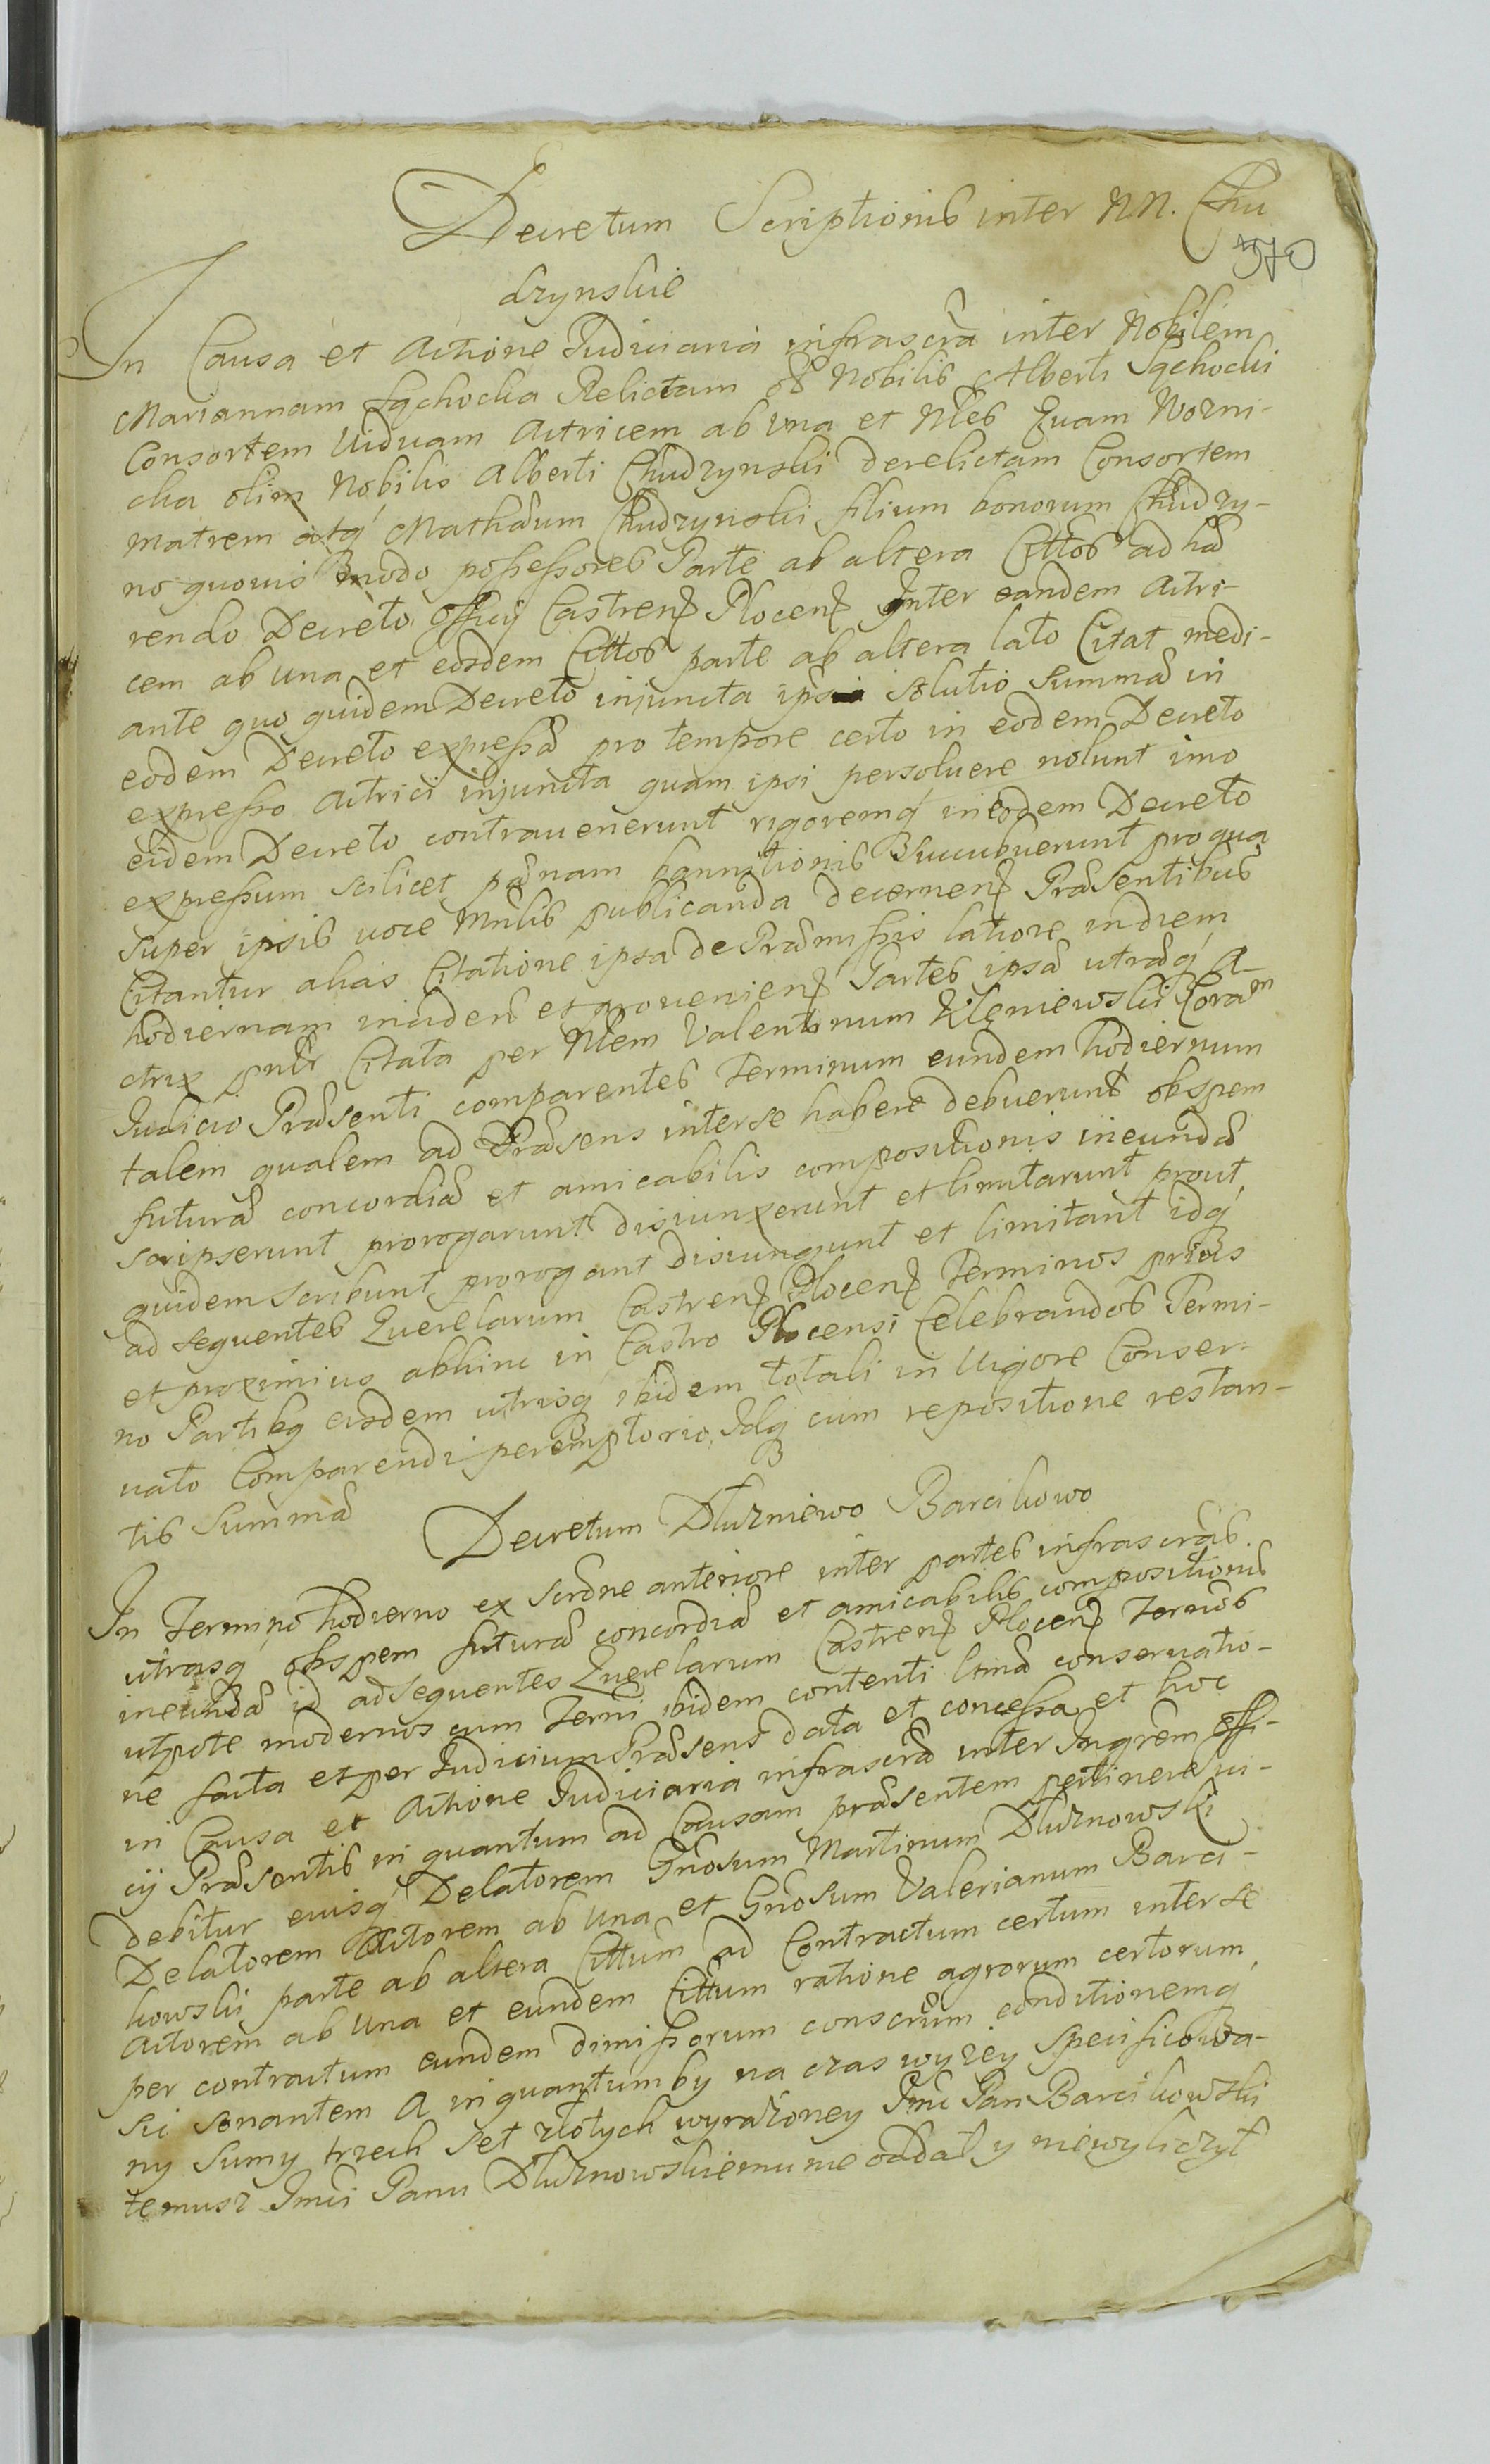 Decretum Scriptionis inter NN. Chu
570
drzynskie
In Causa et Actione Judiciaria infrascra inter Nobilem
Mariannam Sąchocka Relictam ol Nobilis Alberti Sąchocki
Consortem Viduam Actricem ab Una et Nles Evam Worni-
cka olim Nobilis Alberti Chudzynski derelictam Consortem
matrem atq Mathæum Chudzynski filium bonorum Chudzy-
no quovis modo possessores Parte ab altera Cittos ad hæ
rendo Decreto Officij Castren Plocen Inter eandem Actri-
cem ab una et eosdem Cittos parte ab altera lato Citat medi-
ante quo quidem Decreto injuncta ipsis solutio Summæ in
eodem Decreto expressæ pro tempore certo in eodem Decreto
expresso Actrici injuncta quam ipsi persoluere nolunt imo
eidem Decreto contrauenerunt rigoremq in eodem Decreto
expressum scilicet pænam bannitionis Succubuerunt pro qua
super ipsis voce Mnlis publicanda decernen Præsentibus
Citantur alias Citatione ipsa de Præmissis latiore in diem
hodiernam inciden et provenien Partes ipsæ utræq A-
ctrix pntr Citata per Nlem Valentinum Kleniewski Coram
Judicio Præsenti comparentes Terminum eundem hodiernum
talem qualem ad Præsens inter se habere debuerunt ob spem
futuræ concordiæ et amicabilis compositionis ineundæ
scripserunt prorogarunt disiunxerunt et limitarunt prout
quidem scribunt prorogant disiungunt et limitant idq
ad sequentes Querelarum Castren Plocen Terminos prius
et proximius abhinc in Castro Plocensi Celebrandos Termi-
no Partibq eisdem utrisq ibidem totali in Vigore Conser-
uato Comparendi peremptorio, Idq cum repositione restan-
tis Summæ
Decretum Dłuzniewo Barcikowo
In Termino hodierno ex scrone anteriore inter partes infrascras
utrasq ob spem futuræ concordiæ et amicabilis compositionis
ineundæ id ad sequentes Querelarum Castren Plocen Ternos
utpote modernos cum Terni ibidem contenti conservatio-
ne facta et per Judicium Præsens data et concessa et hoc
in Causa et Actione Judiciaria infrascra inter Ingrem Offi-
cij Præsentis in quantum ad Causam præsentem pertinere vi-
debitur eiusq Delatorem Gnosum Martinum Dłuznowski
Delatorem Actorem ab Una et Gnosum Valerianum Barci-
kowski parte ab altera Cittum ad Contractum certum inter se
Actorem ab Una et eundem Cittum ratione agrorum certorum
per contractum eundem dimissorum conscrum conditionemq
sic sonantem A in quantum by na czas wyzey specificowa-
ny Sumy trzech set złotych wyrazoney Jmc Pan Barcikowski
temusz Jmci Panu Dłuznowskiemu nie oddał y niewyliczył